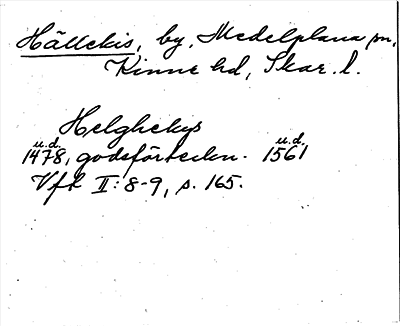 Hällekis, by, Medelplana sn,
Kinne hd, Skar. l.
Helghekys
u.d. u.d.
1478, godsförteckn. 1561
Vfk II: 8-9, s. 165.